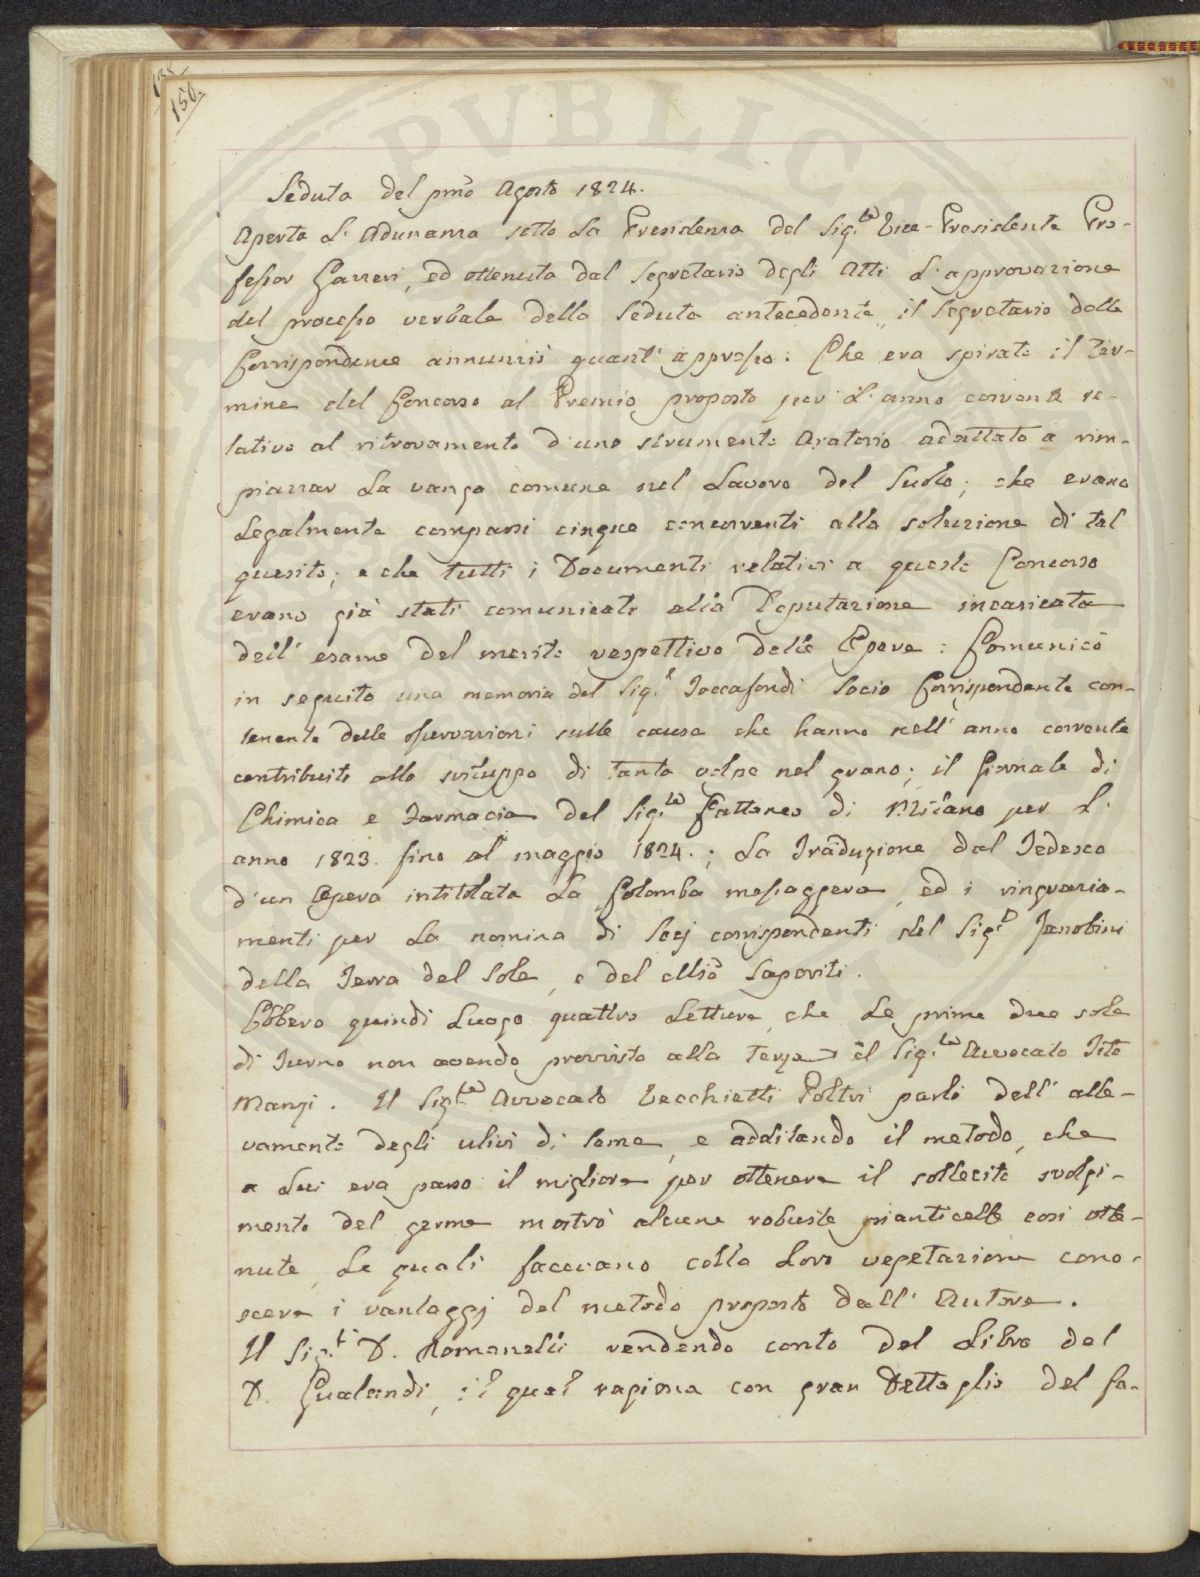 150.
PVBLICA
Seduta del pmo Agosto 1824.
Aperta l'Adunanza sotto la Presidenza del Sig.re Vice-Presidente Pro-
fessor Gazzeri, ed ottenuta dal Segretario degli Atti l'approvazione
del processo verbale della Seduta antecedente, il Segretario delle
Corrispondenze annunziò quant'appresso: Che era spirato il Ter-
mine del Concorso al Premio proposto per l'anno corrente re-
lativo al ritrovamento d'uno strumento Aratorio adattato a rim-
piazzar la vanga comune nel lavoro del Suolo; che erano
legalmente comparsi cinque concorrenti alla soluzione di tal
quesito; e che tutti i Documenti relativi a questo Concorso
erano già stati comunicati alla Deputazione incaricata
dell'esame del merito respettivo delle Opere: Comunicò
in seguito una memoria del Sig.r Toccafondi Socio Corrispondente con-
tenente delle osservazioni sulle cause che hanno nell'anno corrente
contribuito allo sviluppo di tanta golpe nel grano; il Giornale di
Chimica e Farmacia del Sig.re Cattaneo di Milano per l'
anno 1823. fino al maggio 1824.; la Traduzione dal Tedesco
d'un Opera intitolata la Colomba messaggera, ed i ringrazia-
menti per la nomina di Socj corrispondenti del Sig.r Zanobini
della Terra del Sole, e del Saporiti.
Ebbero quindi luogo quattro letture, che le prime due sole
di Turno non avendo provvisto alla terza il Sig.re Avvocato Tito
Manzi. Il Sig.re Avvocato Vecchietti Poltri parlò dell'alle-
vamento degli ulivi di seme, e additando il metodo, che
a lui era parso il migliore per ottenere il sollecito svolgi-
mento del germe mostrò alcune robuste pianticelle così otte-
nute, le quali facevano colla loro vegetazione cono-
scere i vantaggj del metodo proposto dall'Autore.
Il Sig.r D. Romanelli rendendo conto del Libro del
D. Gualandi, il qual ragiona con gran Dettaglio del fa-